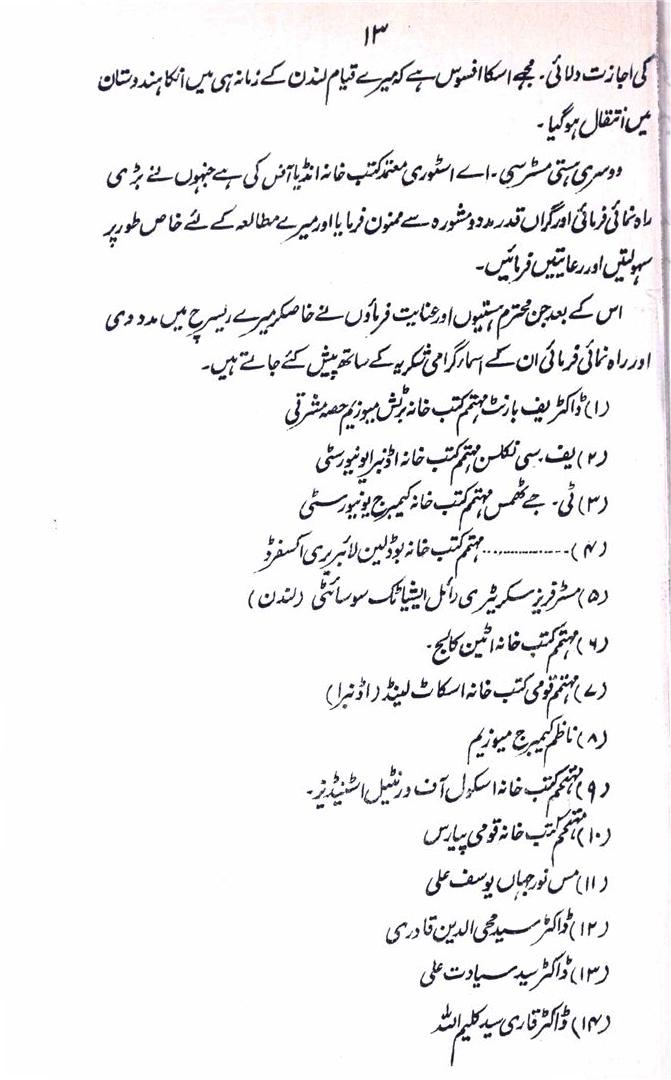 ۱۳
کی اجازت دلائی۔ مجھے اسکا افسوس ہے کہ میرے قیام لندن کے زمانہ ہی میں انکا ہندوستان
میں انتقال ہوگیا۔
دوسری ہستی مسٹر سی۔ اے اسٹوری معتمد کتب خانہ انڈیا آفس کی ہے جنہوں نے بڑی
راہ نمائی فرمائی اور گراں قدر مدد و مشورہ سے ممنون فرمایا اور میرے مطالعہ کے لئے خاص طور پر
سہولتیں اور رعایتیں فرمائیں۔
اس کے بعد جن محترم ہستیوں اور عنایت فرماؤں نے خاصکر میرے ریسرچ میں مدد دی
اور راہ نمائی فرمائی ان کے اسمار گرامی شکریہ کے ساتھ پیش کئے جاتے ہیں۔
(۱) ڈاکٹر یف بارنٹ مہتمم کتب خانہ برٹش میوزیم حصہ مشرقی
(۲) یف۔ سی نکلسن مہتمم کتب خانہ اڈنبرا یونیورسٹی
(۳) ٹی۔ جے ٹھمس مہتمم کتب خانہ کیمبرج یونیورسٹی
(۴) ................ مہتمم کتب خانہ بوڈلین لائبریری اکسفرڈ
(۵) مسٹر فریزر سکریٹری رائل ایشیاٹک سوسائٹی (لندن)
(۶) مہتمم کتب خانہ اٹین کالج۔
(۷) مہتمم قومی کتب خانہ اسکاٹ لینڈ (اڈنبرا)
(۸) ناظم کیمبرج میوزیم
(۹) مہتمم کتب خانہ اسکول آف ورنٹیل اسٹیڈیز۔
(۱۰) مہتمم کتب خانہ قومی پیارس
(۱۱) مس نور جہاں یوسف علی
(۱۲) ڈاکٹر سید محی الدین قادری
(۱۳) ڈاکٹر سید سیادت علی
(۱۴) ڈاکٹر قاری سید کلیم اللہ